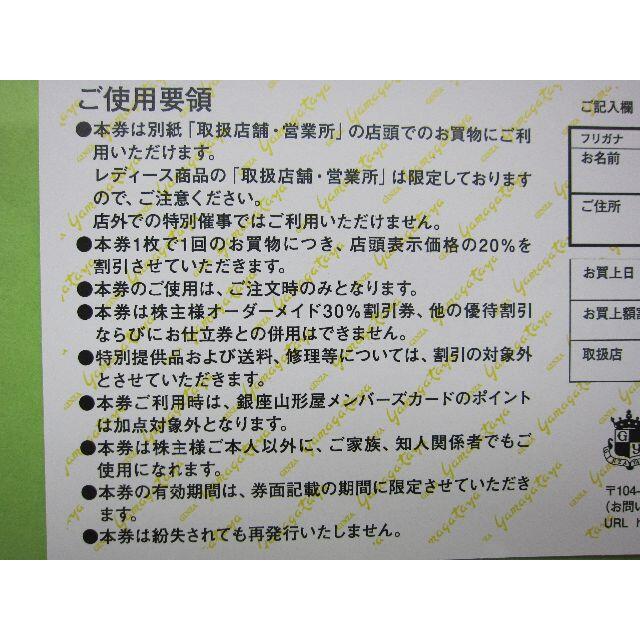 ご使用要領
●本券は別紙「取扱店舗・営業所」の店頭でのお買物にご利
用いただけます。
レディース商品の「取扱店舗・営業所」は限定しております
ので、ご注意ください。
店外での特別催事ではご利用いただけません。
●本券1枚で1回のお買物につき、店頭表示価格の20%を
割引させていただきます。
●本券のご使用は、ご注文時のみとなります。
●本券は株主様オーダーメイド30%割引券、他の優待割引
ならびにお仕立券との併用はできません。
●特別提供品および送料、修理等については、割引の対象外
とさせていただきます。
●本券ご利用時は、銀座山形屋メンバーズカードのポイント
は加点対象外となります。
●本券は株主様ご本人以外に、ご家族、知人関係者でもご
使用になれます。
●本券の有効期間は、券面記載の期間に限定させていただき
ます。
●本券は紛失されても再発行いたしません。
ご記入欄
フリガナ
お名前
ご住所
お買上日
お買上額
取扱店
G Y
〒104-
(お問い
URL h
GINZA
Yamagataya